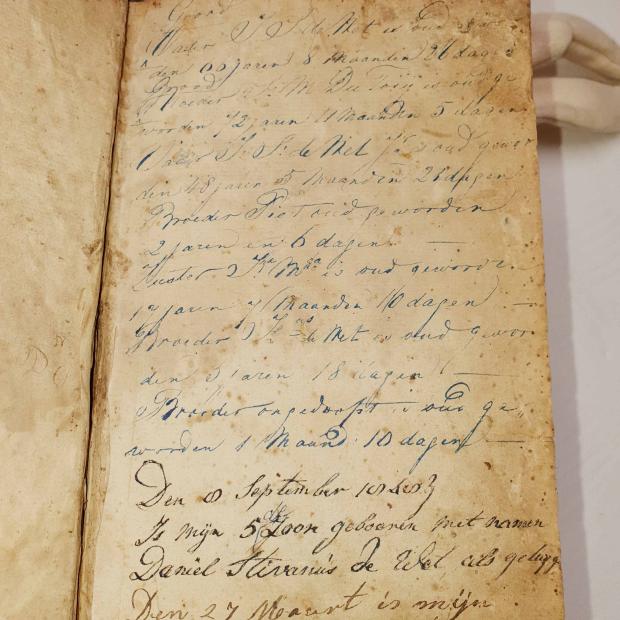 Groood
Vader S. de Wet is oud ge
den 60 jaren 8 Maanden 26 dagen
Groood
Moeder M is oud ge
worden 72 jaren 11 Maanden 5 dagen
Vader de Wet oud gewor
den 48 jaren 5 Maanden 21 dagen
Broeder Piet oud geworden
2 jaren en 6 dagen —
Suster is oud geworden
12 jaren 7 Maanden 16 dagen —
Broeder de Wet is oud gewor
den jaren 18 dagen —
Broeder ongedoopt is oud ge,,
worden 1 Maand 10 dagen —
Den 8 September
Is mijn 5de Zoon gebooren met namen
Daniel Stivanus de Wet als getuyg
Den 27 Maart is mijn